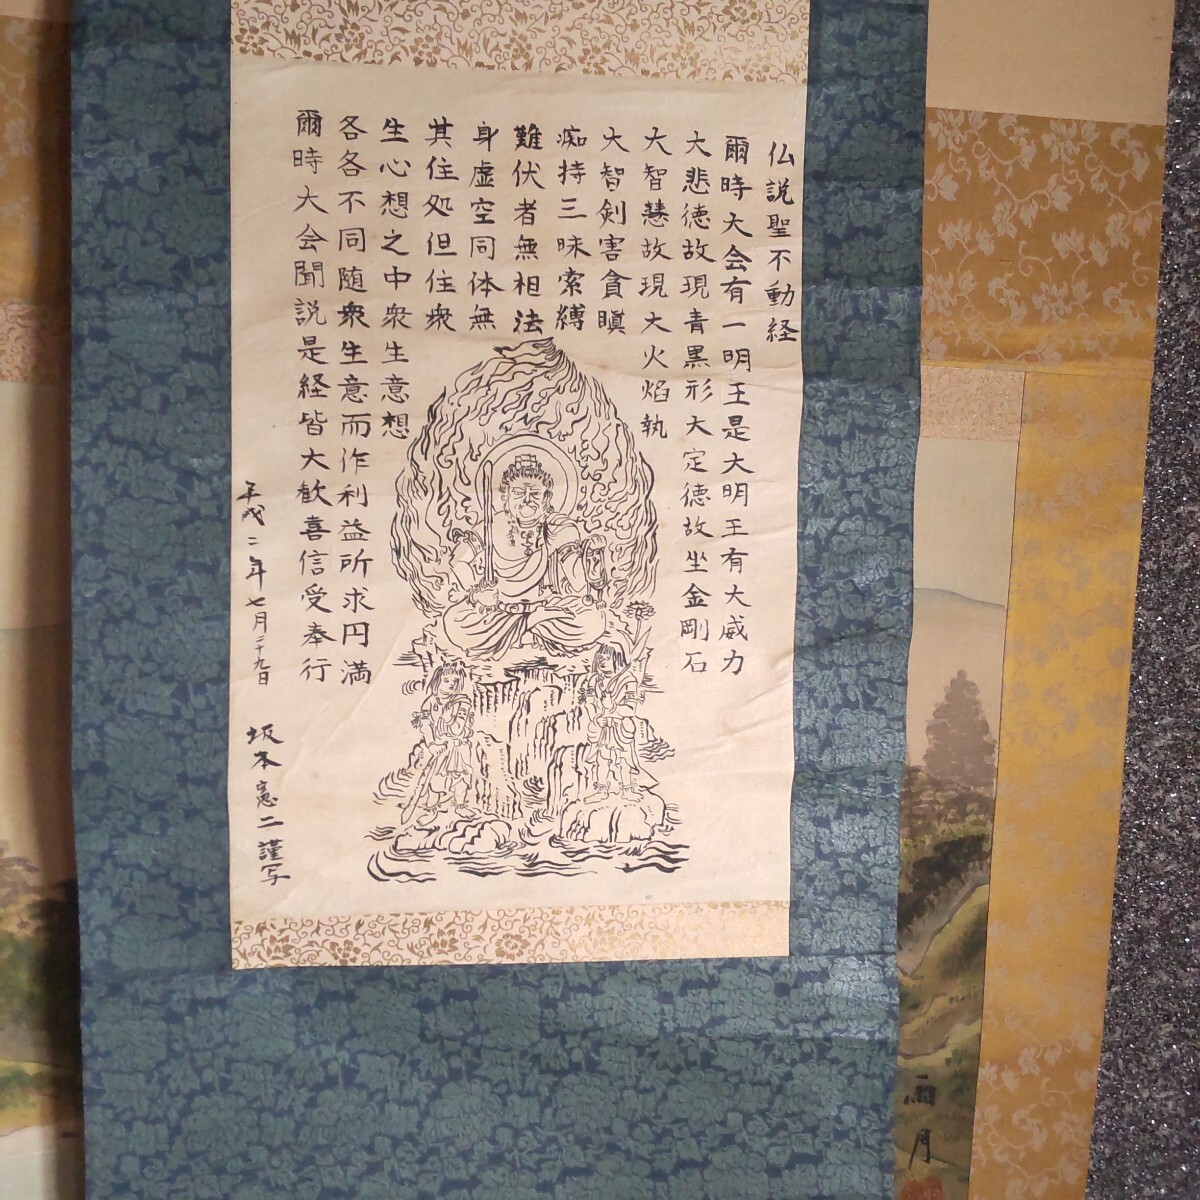 仏説聖不動経
爾時大会有一明王是大明王有大威力
大悲徳故現青黒形大定徳故坐金剛石
大智慧故現大火焰執
大智剣害貪瞋
痴持三昧索縛
難伏者無相法
身虚空同体無
其住処但住衆
生心想之中衆生意想
各各不同随衆生意而作利益所求円満
爾時大会聞説是経皆大歓喜信受奉行
平成二年七月二十九日
坂本憲二謹写
雨月